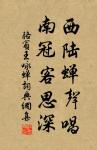 西陆蝉声唱
南冠客思深
骆宾王咏蝉词典网集